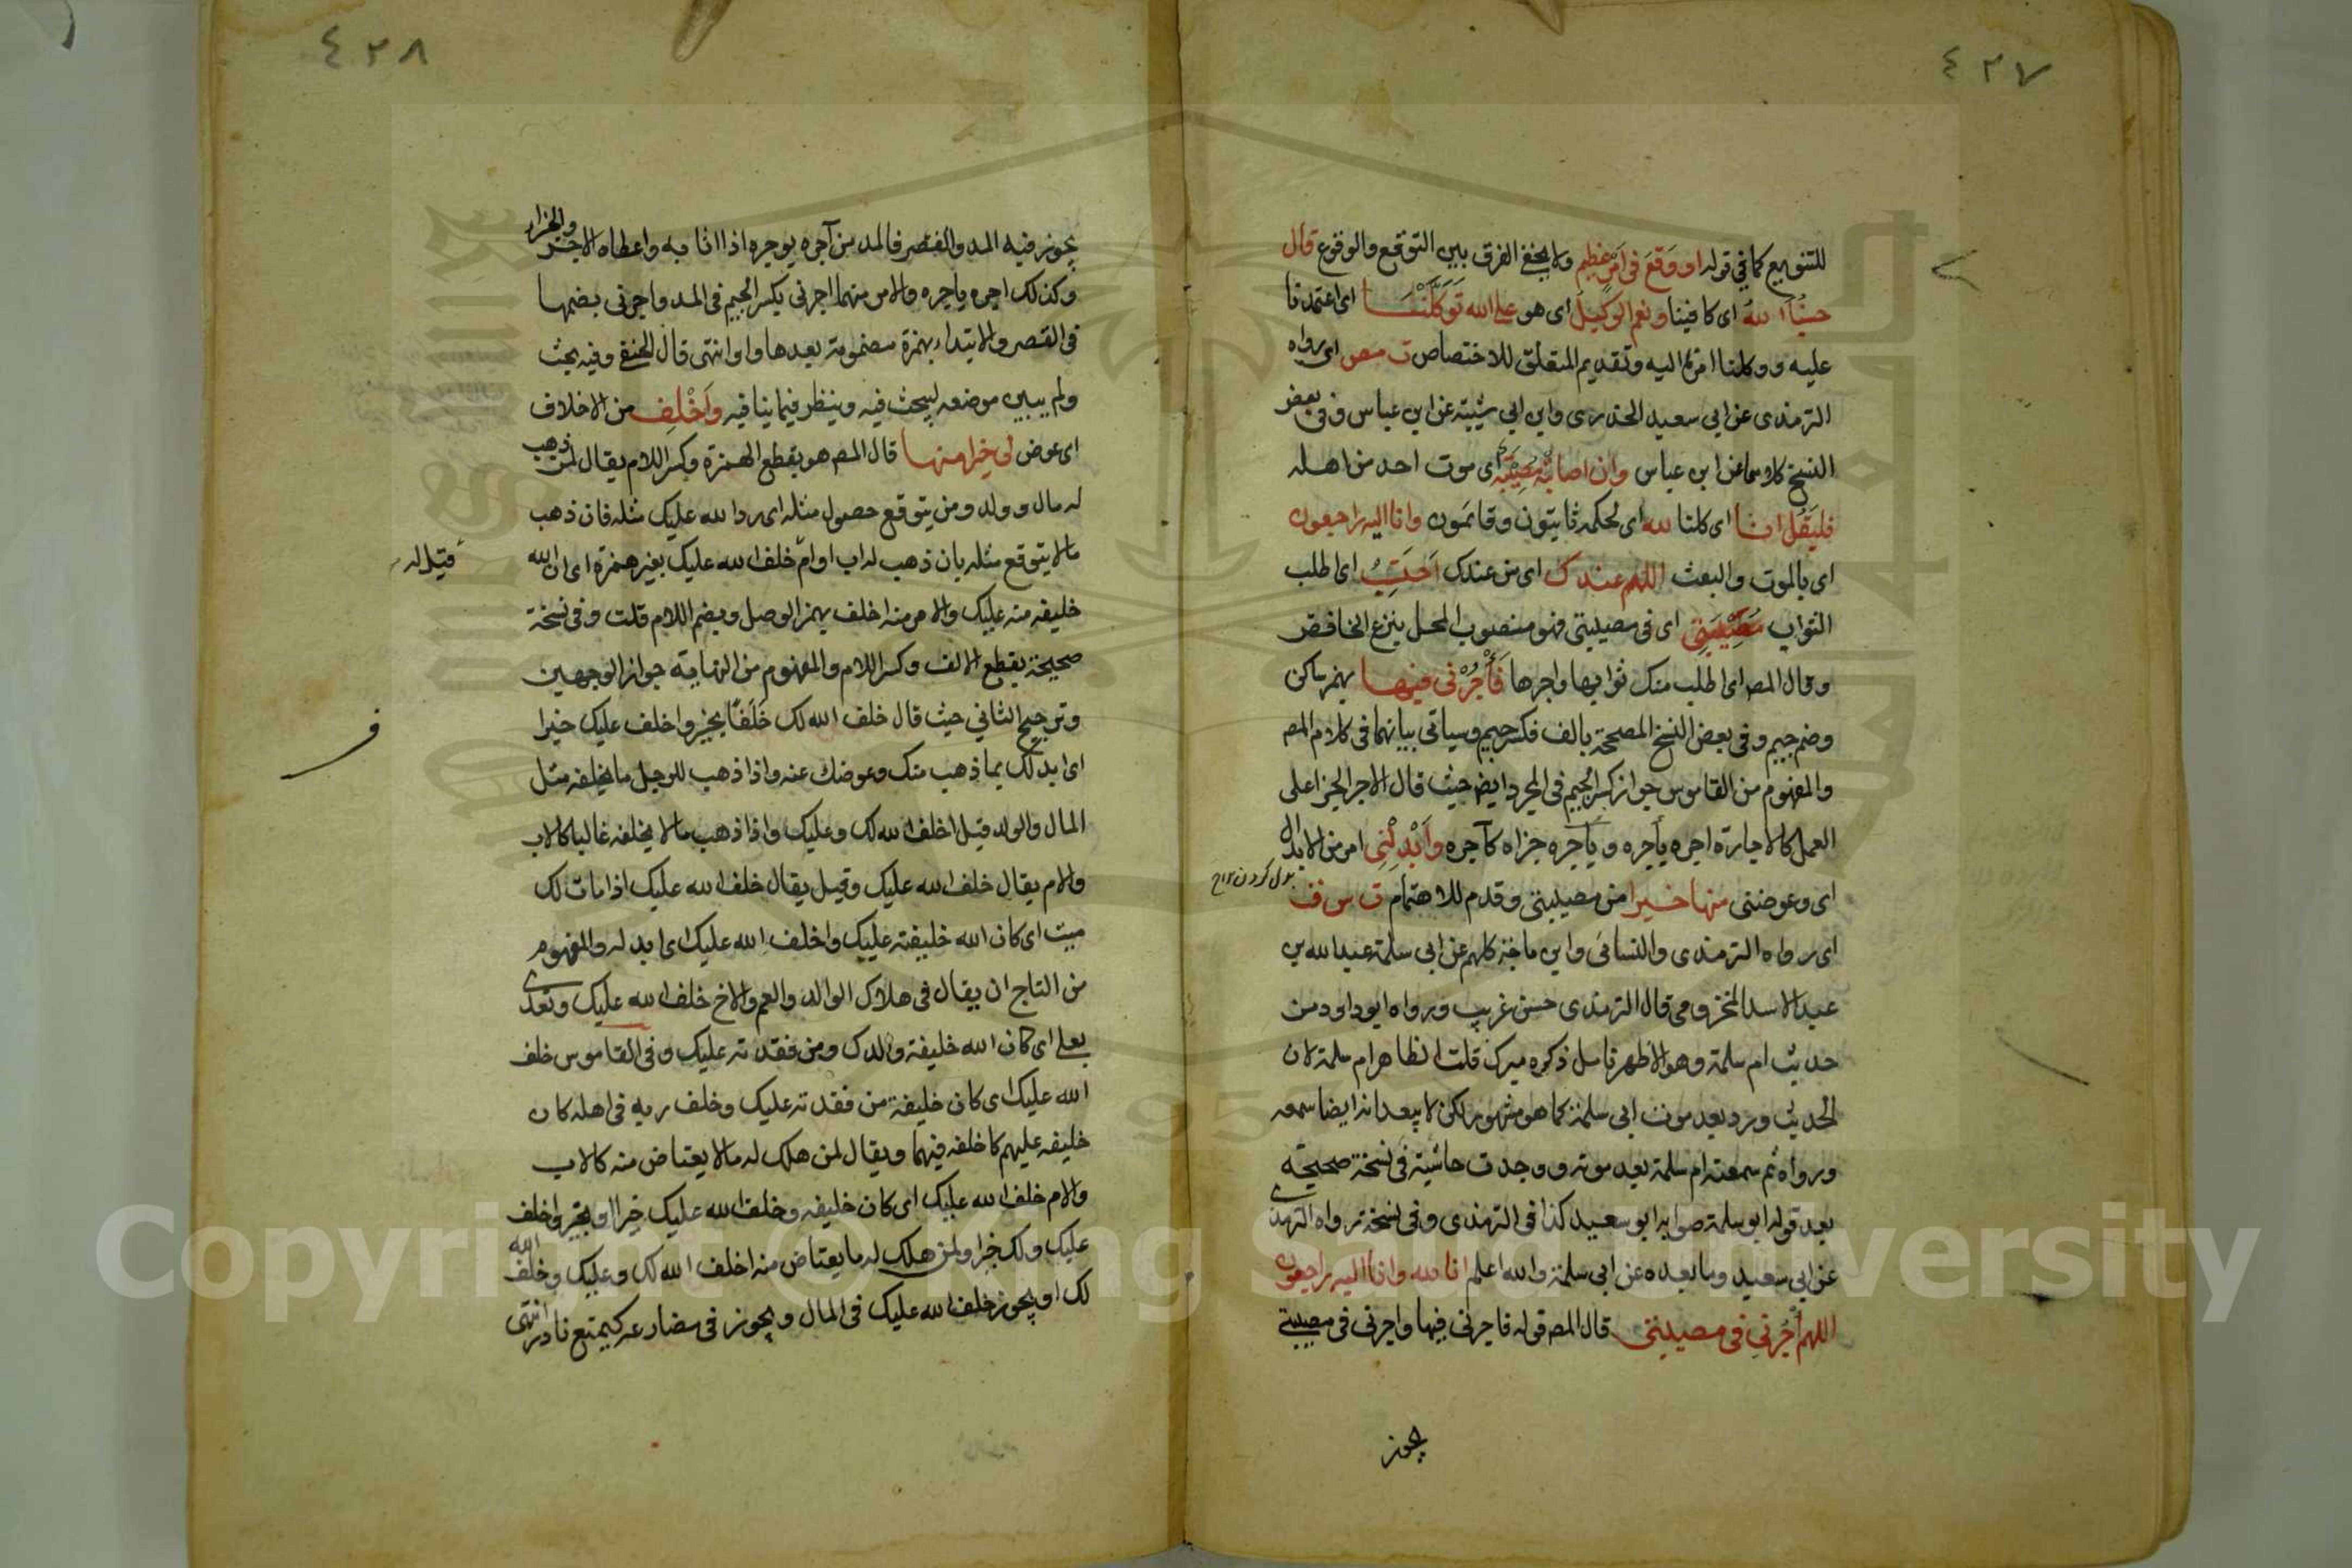 ٤٢٧
للتنويع كما في قوله او وَقَعَ في امر عظيم ولا يخفى الفرق بين التوقع والوقوع قال
حسبنا الله اى كافينا ونعم الوكيل اى هو على الله توكلنا اى اعتمدنا
عليه ووكلنا امرنا اليه وتقديم المتعلق للاختصاص ت مص اى رواه
الترمذى عن ابي سعيد الخدرى وابن ابي شيبة عن ابن عباس وفى بعض
النسخ كلاهما عن ابن عباس وان اصابته مصيبة اى موت احد من اهله
فليقل انا اى كلنا لله اى لحكمه ثابتون وقائمون وانا اليه راجعون
اى بالموت والبعث اللهم عندك اى من عندك احتسب اى اطلب
الثواب مصيبتى اى فى مصيبتى فهو منصوب المحل بنزع الخافض
وقال المص اى اطلب منك ثوابها واجرها فأجرنى فيها بهمز ساكن
وضم جيم وفى بعض النسخ المصححة بالف فكسر جيم وسياتى بيانهما فى كلام المص
والمفهوم من القاموس جواز كسر الجيم فى المجرد ايضا حيث قال الاجر الجزا على
العمل كالاجارة اجره يأجره ويأجره جزاه كآجره وأبدلنى امر من الابدال
بدل كردن
اى وعوضنى منها خيرا من مصيبتى وقدم للاهتمام ت س ق
اى رواه الترمذى والنسائى وابن ماجة كلهم عن ابى سلمة عبد الله بن
عبد الاسد المخزومى قال الترمذى حسن غريب ورواه ابو داود من
حديث ام سلمة وهو الاظهر تامل ذكره ميرك قلت الظاهر ام سلمة لان
الحديث ورد بعد موت ابى سلمة كما هو مشهور لكن لا يبعد انه ايضا سمعه
ورواه ثم سمعته ام سلمة بعد موته ووجدت حاشية فى نسخة صحيحة
بعد قوله ابو سلمة صوابه ابو سعيد كذا فى الترمذى وفى نسخة رواه الترمذى
عن ابى سعيد وما بعده عن ابى سلمة والله اعلم انا لله وانا اليه راجعون
اللهم أجرنى فى مصيبتى قال المص قوله فاجرنى فيها واجرنى فى مصيبتى
يجوز
٤٢٨
يجوز فيه المد والقصر فالمد من آجره يوجره اذا اثابه واعطاه الاجر والجزاء
وكذلك اجره ياجره والامر منهما اجرنى بكسر الجيم فى المد واجرنى بضمها
فى القصر والابتداء بهمزة مضمومة بعدها واو انتهى قال الحنفى وفيه بحث
ولم يبين موضعه ليبحث فيه وينظر فيما ينافيه وأَخْلِف من الاخلاف
اى عوض لى خيرا منها قال المص هو بقطع الهمزة وكسر اللام يقال لمن ذهب
له مال وولد ومن يتوقع حصول مثله اى رد الله عليك مثله فان ذهب
ما لا يتوقع مثله بان ذهب له اب او ام خلف الله عليك بغير همزة اى ان الله
قيل له
خليفة منه عليك والامر منه اخلف بهمز الوصل وبضم اللام قلت وفى نسخة
صحيحة بقطع الالف وكسر اللام والمفهوم من النهاية جواز الوجهين
وترجيح الثاني حيث قال خلف الله لك خَلَفًا بخير واخلف عليك خيرا
اى ابدلك بما ذهب منك وعوضك عنه واذا ذهب للرجل ما يخلفه مثل
المال والولد قيل اخلف الله لك وعليك واذا ذهب ما لا يخلفه غالبا كالاب
والام يقال خلف الله عليك وقيل يقال خلف الله عليك اذا مات لك
ميت اى كان الله خليفته عليك واخلف الله عليك اى ابدله والمفهوم
من التاج ان يقال فى هلاك الوالد والعم والاخ خلف الله عليك وتعدى
بعلى اى كان الله خليفة والدك ومن فقدته عليك وفى القاموس خلف
الله عليك اى كان خليفة من فقدته عليك وخلف ربه فى اهله كان
خليفه عليهم كاخلفه فيهما ويقال لمن هلك له ما لا يعتاض منه كالاب
والام خلف الله عليك اى كان خليفه وخلف الله عليك خيرا او بخير واخلف
عليك ولك خيرا ولمن هلك له ما يعتاض منه اخلف الله لك وعليك وخلف الله
لك او يجوز خلف الله عليك فى المال ويجوز فى مضارعه كيمنع نادر انتهى
Copyright © King Saud University